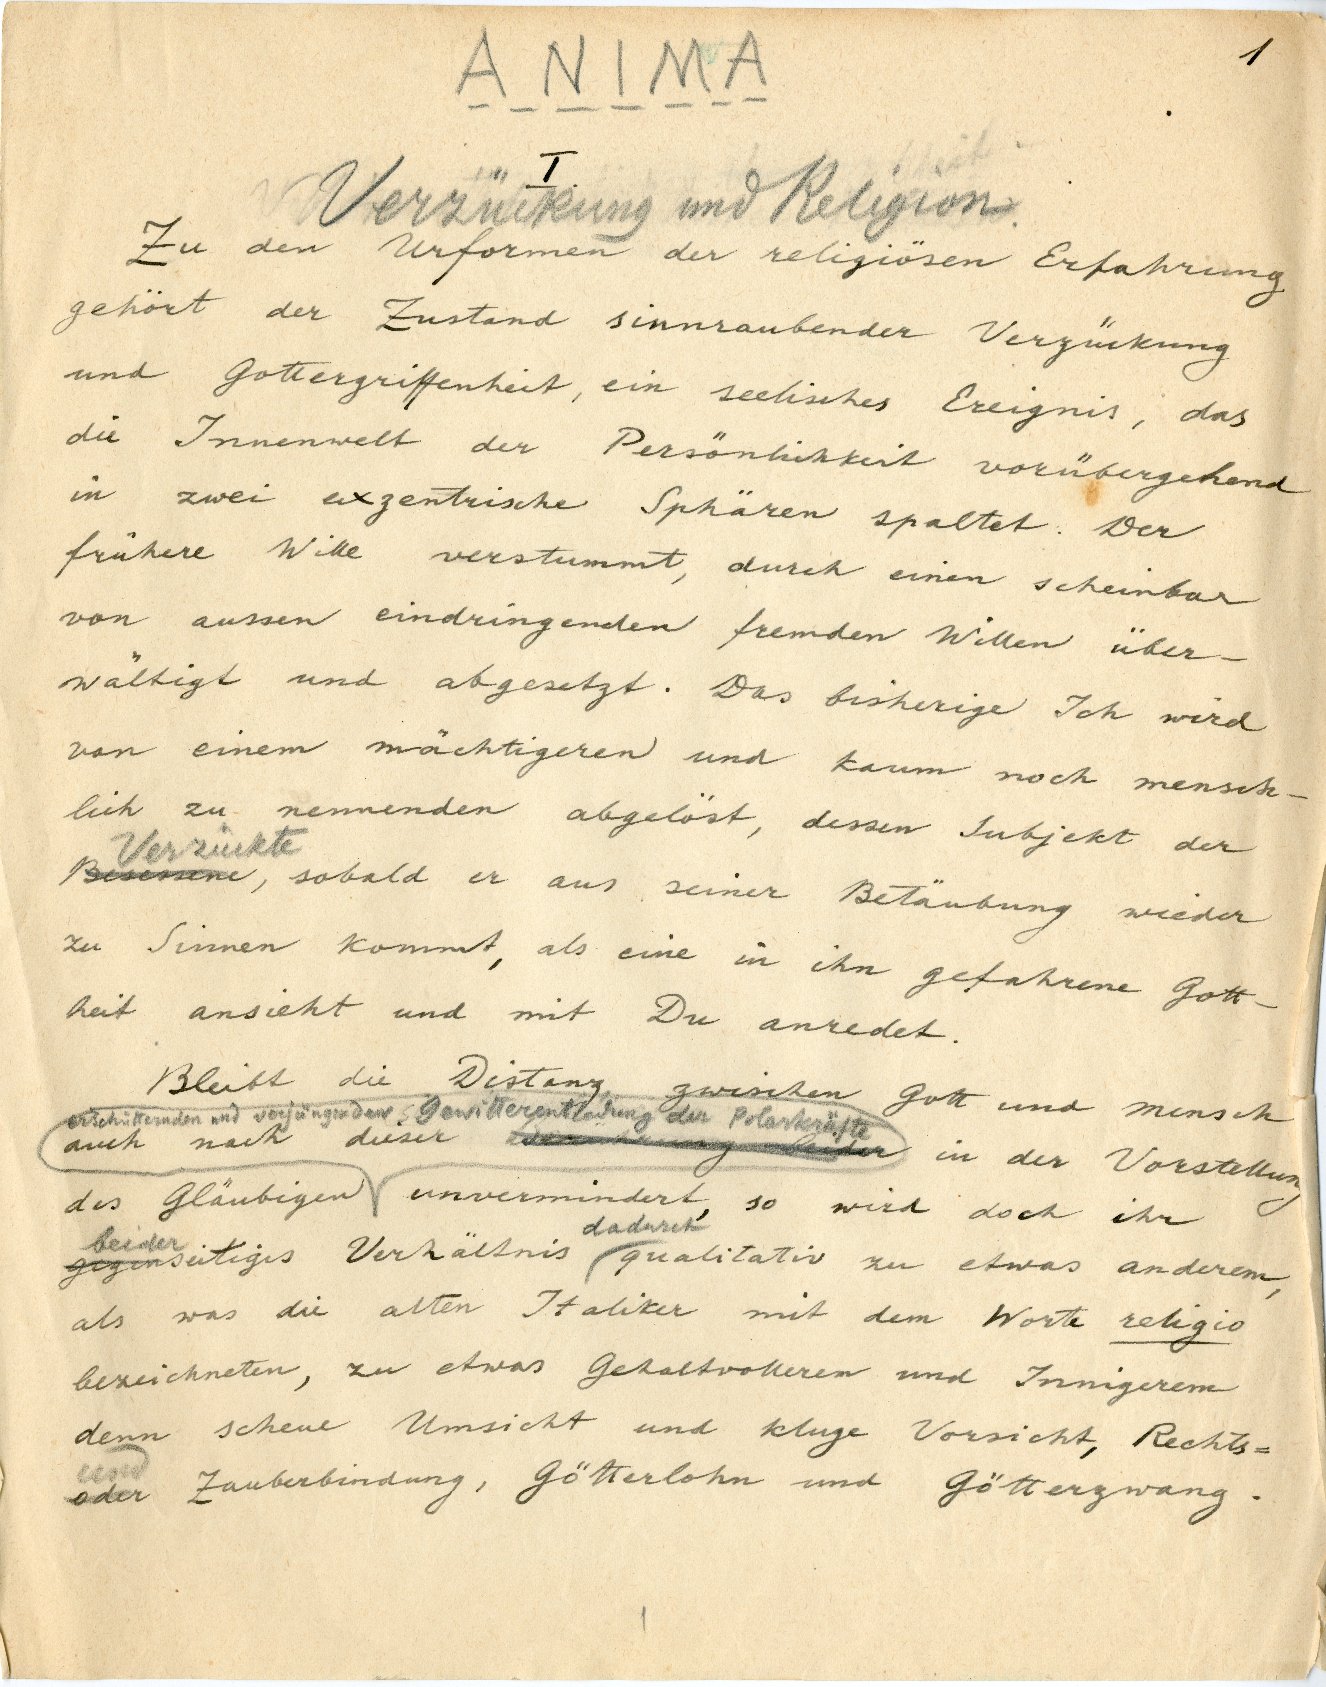 1
ANIMA
I
Verzückung und Religion.
Zu den Urformen der religiösen Erfahrung
gehört der Zustand sinnraubender Verzückung
und Gottergriffenheit, ein seelisches Ereignis, das
die Innenwelt der Persönlichkeit vorübergehend
in zwei exzentrische Sphären spaltet. Der
frühere Wille verstummt, durch einen scheinbar
von aussen eindringenden fremden Willen über-
wältigt und abgesetzt. Das bisherige Ich wird
von einem mächtigeren und kaum noch mensch-
lich zu nennenden abgelöst, dessen Subjekt der
Verzückte
Besessene, sobald er aus seiner Betäubung wieder
zu Sinnen kommt, als eine in ihn gefahrene Gott-
heit ansieht und mit Du anredet.
Bleibt die Distanz zwischen Gott und Mensch
erschütternden und verjüngenden Gewitterentladung der Polarkräfte
auch nach dieser beider in der Vorstellung
des Gläubigen unvermindert, so wird doch ihr
beider dadurch
gegenseitiges Verhältnis qualitativ zu etwas anderem,
als was die alten Italiker mit dem Worte religio
bezeichneten, zu etwas Gehaltvollerem und Innigerem
denn scheue Umsicht und kluge Vorsicht, Rechts=
und
oder Zauberbindung, Götterlohn und Götterzwang.
1